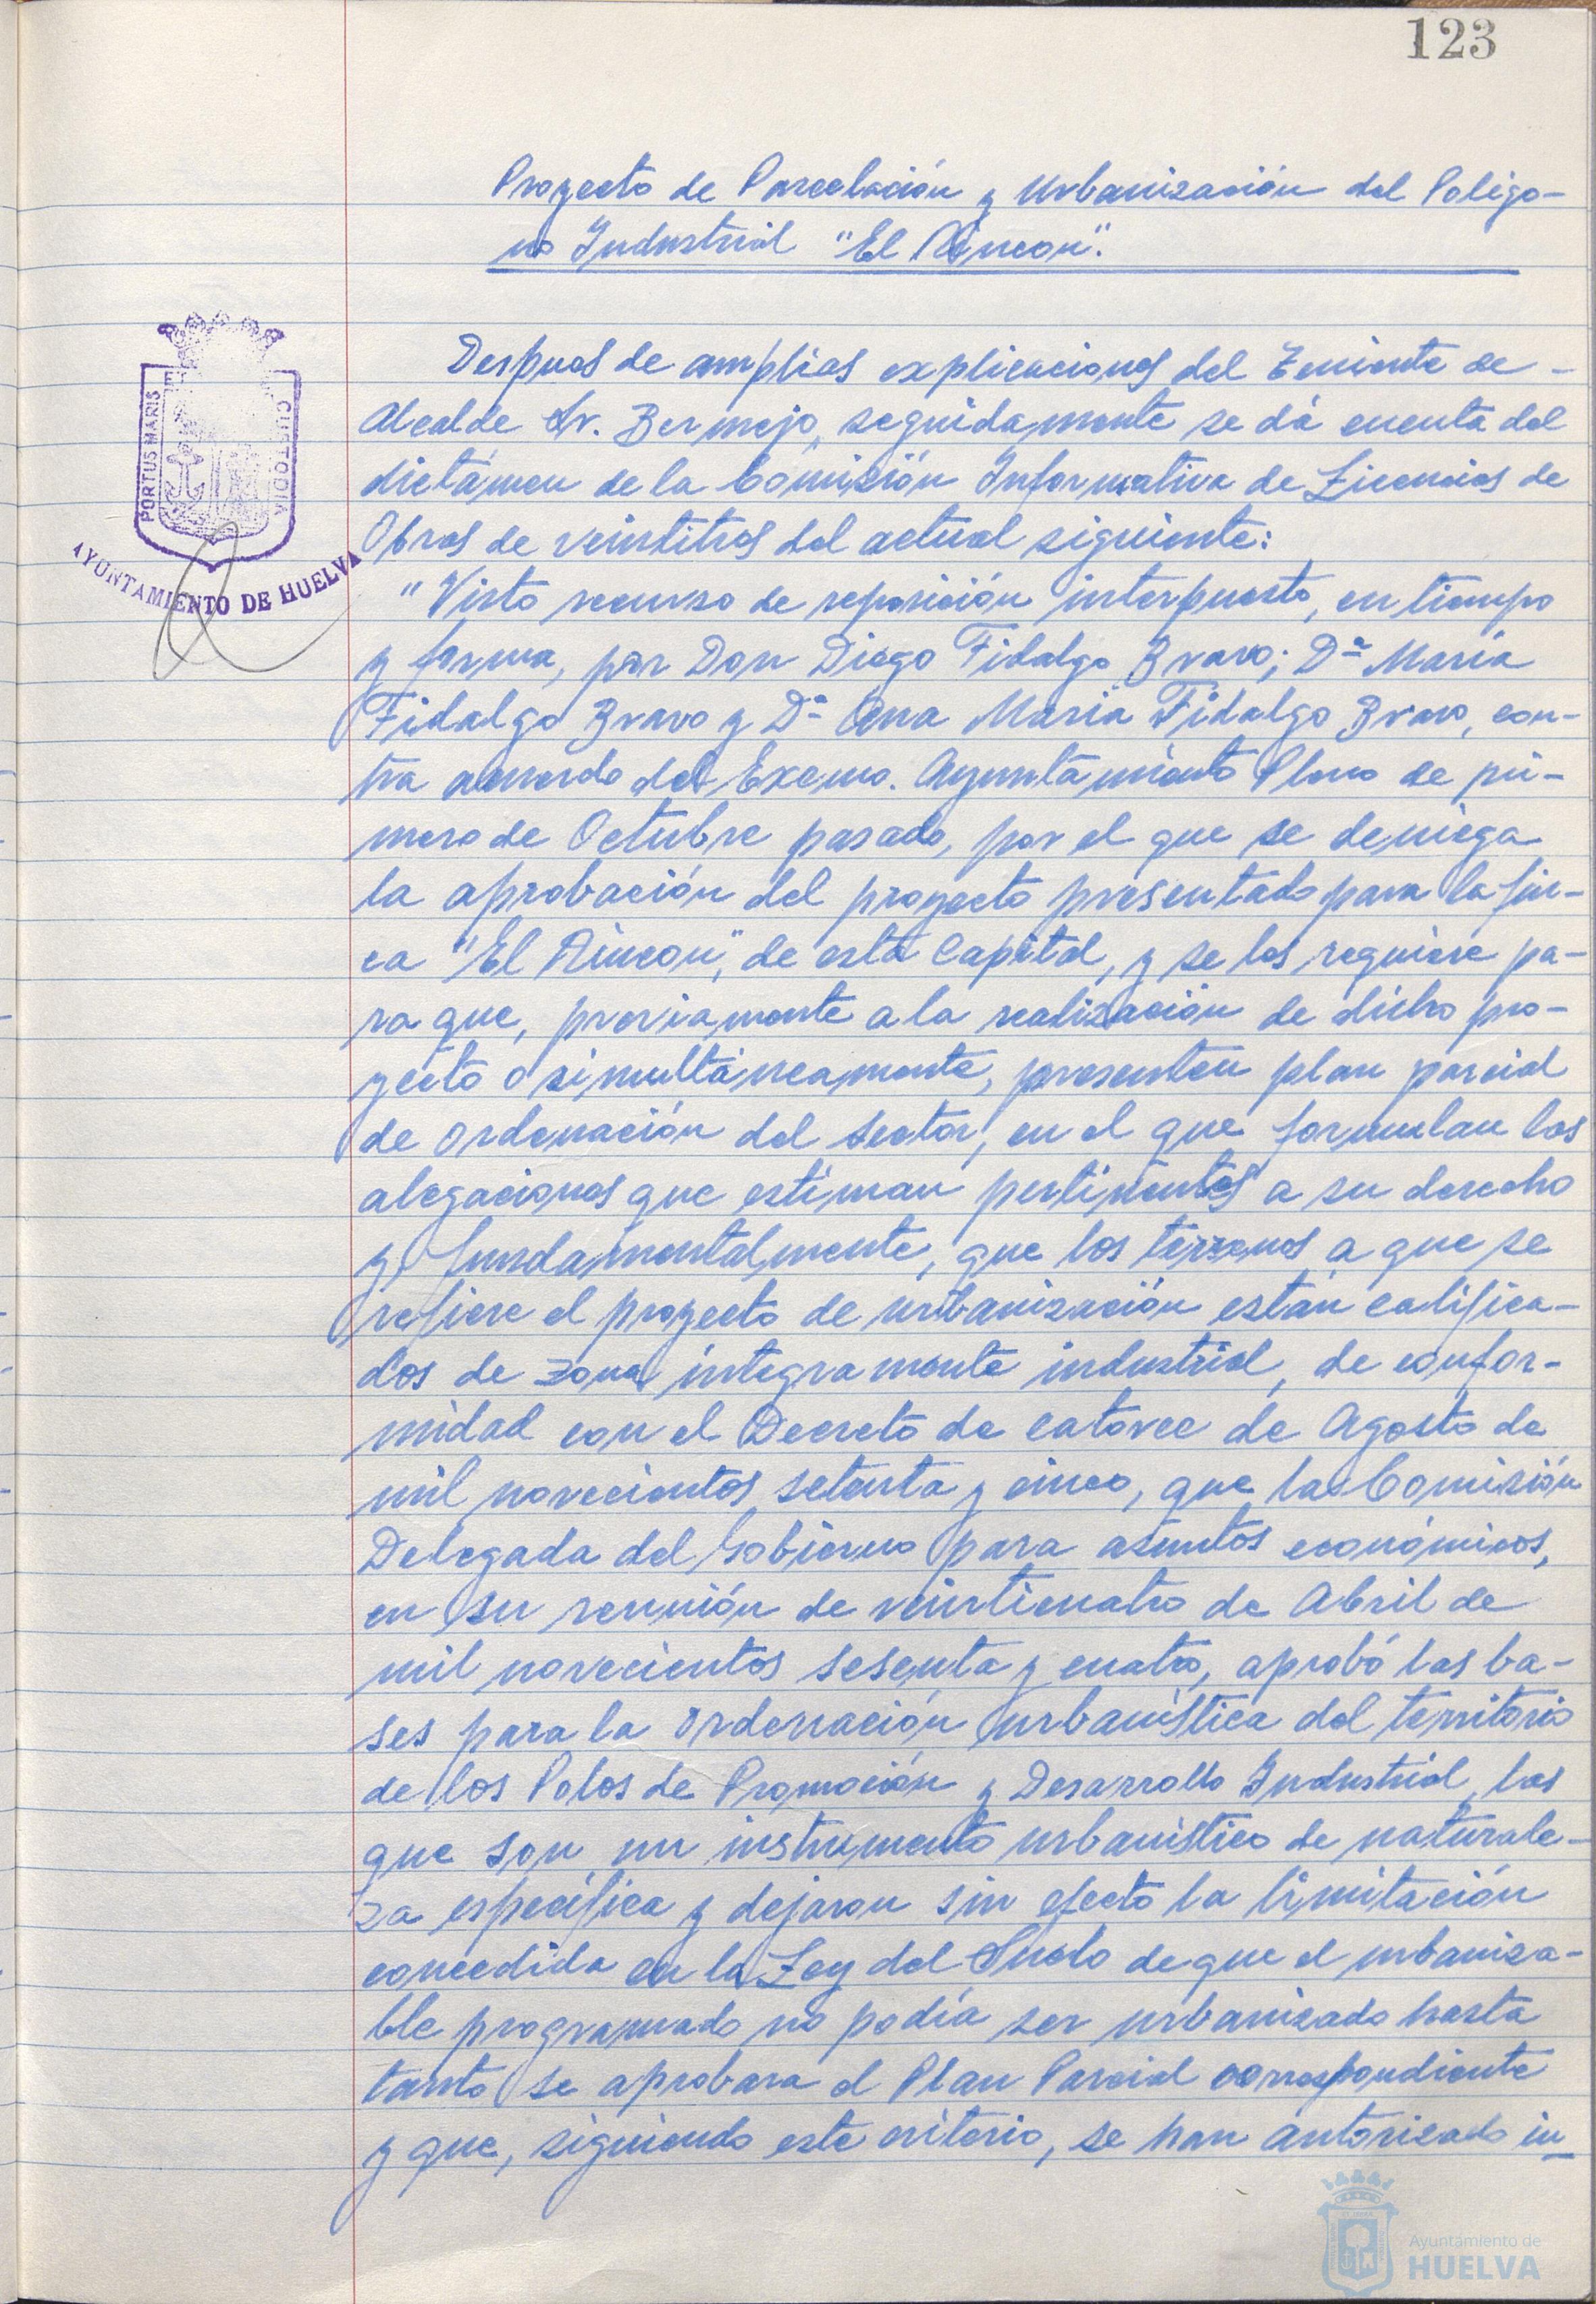 123
Proyecto de Parcelación y Urbanización del Polígo-
no Industrial "El Rincon".
Despues de amplias explicaciones del Teniente de -
Alcalde Sr. Bermejo, seguidamente se dá cuenta del
dictámen de la Comisión Informativa de Licencias de
Obras de veintitres del actual siguiente:
"Visto recurso de reposición interpuesto, en tiempo
y forma, por Don Diego Fidalgo Bravo; Dª María
Fidalgo Bravo y Dª Ana María Fidalgo Bravo, con-
tra acuerdo del Excmo. Ayuntamiento Pleno de pri-
mero de Octubre pasado, por el que se deniega
la aprobación del proyecto presentado para la fin-
ca "El Rincon", de esta Capital, y se les requiere pa-
ra que, previamente a la realización de dicho pro-
yecto o simultáneamente, presenten plan parcial
de ordenación del sector, en el que formulan las
alegaciones que estiman pertinentes a su derecho
y fundamentalmente, que los terrenos a que se
refiere el proyecto de urbanización están califica-
dos de zona integramente industrial, de confor-
midad con el Decreto de catorce de Agosto de
mil novecientos setenta y cinco, que la Comisión
Delegada del Gobierno para asuntos económicos,
en su reunión de veinticuatro de Abril de
mil novecientos sesenta y cuatro, aprobó las ba-
ses para la ordenación urbanística del territorio
de los Polos de Promoción y Desarrollo Industrial, las
que son un instrumento urbanístico de naturale-
za específica y dejaron sin efecto la limitación
concedida en la Ley del Suelo de que el urbaniza-
ble programado no podía ser urbanizado hasta
tanto se aprobara el Plan Parcial correspondiente
y que, siguiendo este criterio, se han autorizado in
PORTUS MARIS
CUSTODIA
AYUNTAMIENTO DE HUELVA
Ayuntamiento de
HUELVA